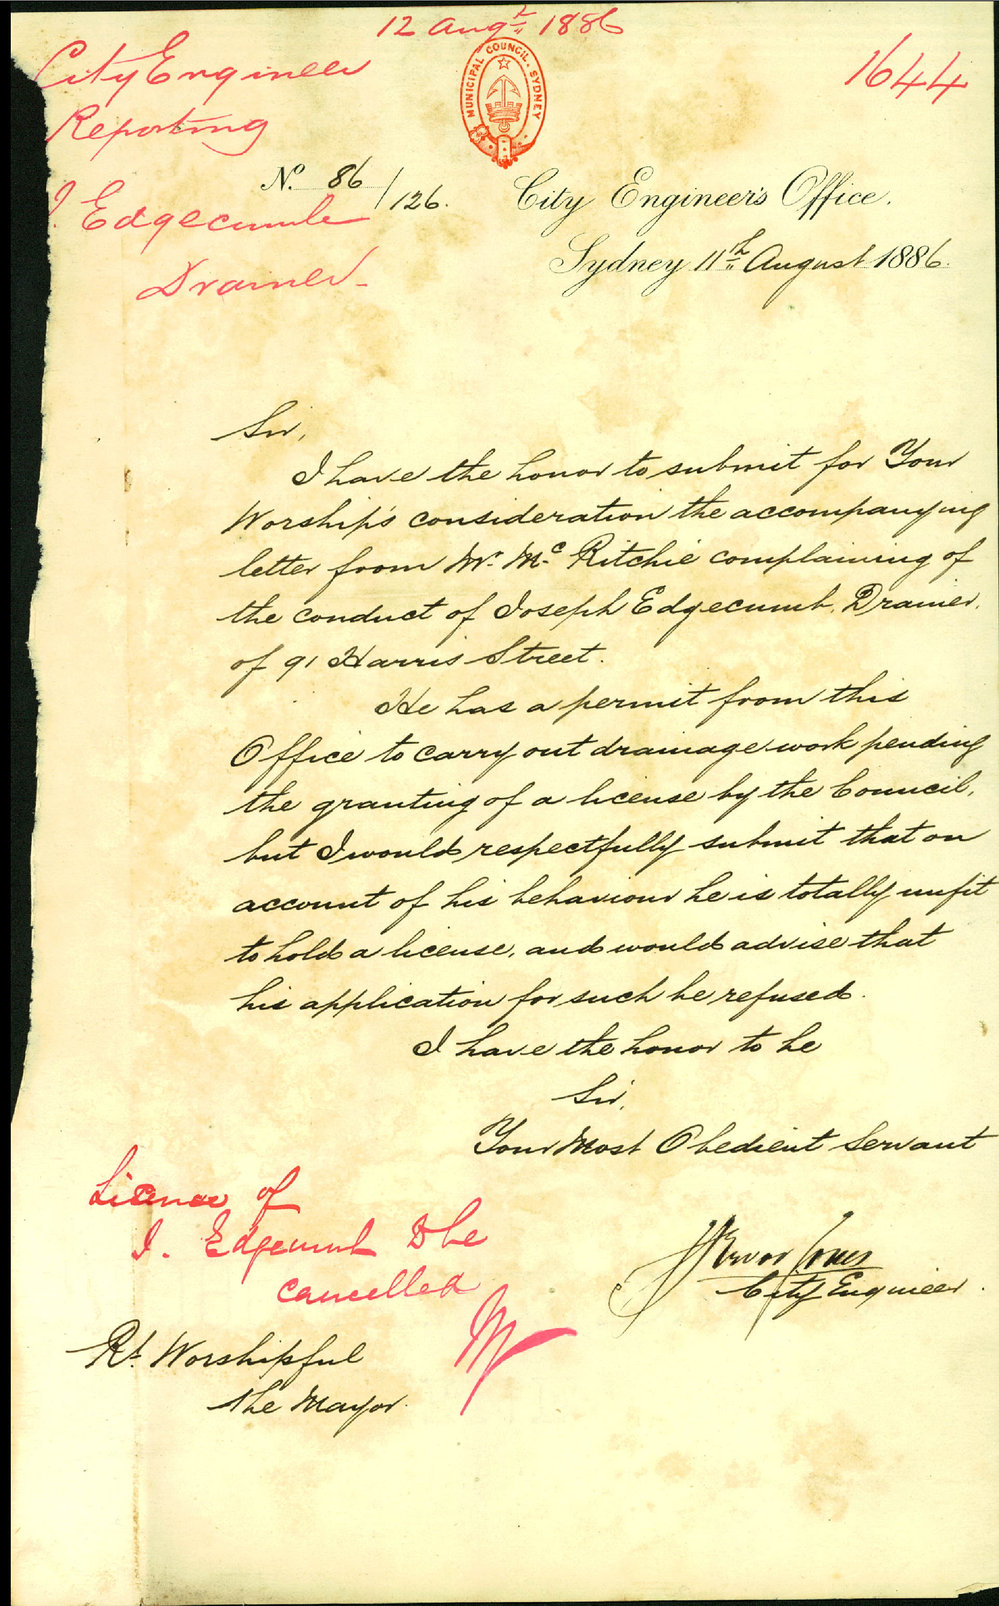 12 Augt 1886
MUNICIPAL COUNCIL. SYDNEY
1644
City Engineer
Reporting
J Edgecumbe
Drainer -
No. 86/126.
City Engineer's Office.
Sydney 11th August 1886.
Sir,
I have the honor to submit for Your
Worship's consideration the accompanying
letter from Mr. Mc Ritchie complaining of
the conduct of Joseph Edgecumb, Drainer,
of 91 Harris Street.
He has a permit from this
Office to carry out drainage work pending
the granting of a license by the Council,
but I would respectfully submit that on
account of his behaviour he is totally unfit
to hold a license, and would advise that
his application for such be refused.
I have the honor to be
Sir,
Your Most Obedient Servant
Trevor Jones
City Engineer.
Licence of
J. Edgecumb to be
cancelled
Rt. Worshipful
the Mayor.